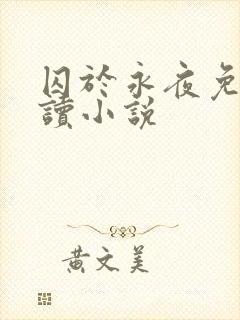 囚於永夜免
讀小說
黃文美